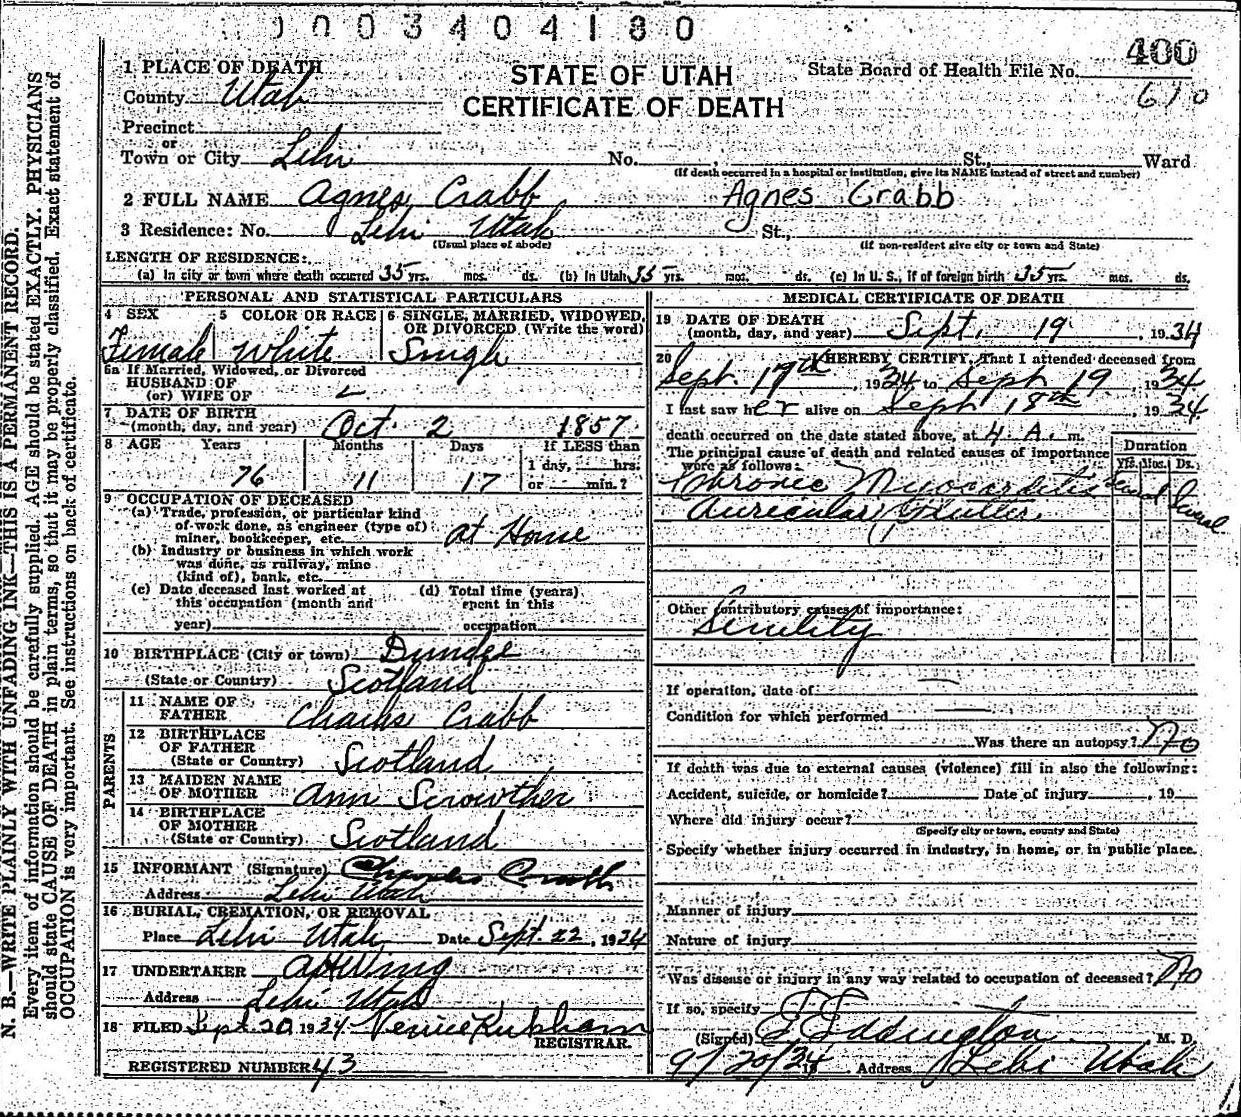 1003404180
400
1 PLACE OF DEATH
STATE OF UTAH
State Board of Health File No.
County Utah
CERTIFICATE OF DEATH
610
Precinct
or
Town or City Lehi No. , St., Ward
(If death occurred in a hospital or institution, give its NAME instead of street and number)
2 FULL NAME Agnes Crabb Agnes Crabb
3 Residence: No. Lehi Utah St.,
(Usual place of abode) (If non-resident give city or town and State)
LENGTH OF RESIDENCE:
(a) In city or town where death occurred 35 yrs. mos. ds. (b) In Utah 35 yrs. mos. ds. (c) In U. S., if of foreign birth 35 yrs. mos. ds.
PERSONAL AND STATISTICAL PARTICULARS
4 SEX 5 COLOR OR RACE 6 SINGLE, MARRIED, WIDOWED, OR DIVORCED (Write the word)
Female White Single
6a If Married, Widowed, or Divorced
HUSBAND OF
(or) WIFE OF
7 DATE OF BIRTH
(month, day, and year) Oct. 2 1857
8 AGE Years Months Days If LESS than
76 11 17 1 day, hrs.
or min.?
9 OCCUPATION OF DECEASED
(a) Trade, profession, or particular kind
of work done, as engineer (type of)
miner, bookkeeper, etc. at Home
(b) Industry or business in which work
was done, as railway, mine
(kind of), bank, etc.
(c) Date deceased last worked at
this occupation (month and
year)
(d) Total time (years)
spent in this
occupation
10 BIRTHPLACE (City or town) Dundee
(State or Country) Scotland
PARENTS
11 NAME OF
FATHER Charles Crabb
12 BIRTHPLACE
OF FATHER
(State or Country) Scotland
13 MAIDEN NAME
OF MOTHER Ann Scrowther
14 BIRTHPLACE
OF MOTHER
(State or Country) Scotland
15 INFORMANT (Signature) Charles Crabb
Address Lehi Utah
16 BURIAL, CREMATION, OR REMOVAL
Place Lehi Utah Date Sept. 22, 1934
17 UNDERTAKER
Address Lehi Utah
18 FILED Sept 20 1934
REGISTRAR.
REGISTERED NUMBER 43
MEDICAL CERTIFICATE OF DEATH
19 DATE OF DEATH
(month, day, and year) Sept. 19 1934
20 I HEREBY CERTIFY, That I attended deceased from
Sept. 17th, 1934 to Sept 19, 1934
I last saw her alive on Sept 18th, 1934
death occurred on the date stated above, at 4 A. m.
The principal cause of death and related causes of importance
were as follows:
Duration
Yrs. Mos. Ds.
Chronic Myocarditis
Auricular Flutter Several
Other contributory causes of importance:
Senility
If operation, date of
Condition for which performed
Was there an autopsy? No
If death was due to external causes (violence) fill in also the following:
Accident, suicide, or homicide? Date of injury , 19
Where did injury occur?
(Specify city or town, county and State)
Specify whether injury occurred in industry, in home, or in public place.
Manner of injury
Nature of injury
Was disease or injury in any way related to occupation of deceased? No
If so, specify
(Signed) Eddington M. D.
9/20/34 19 , Address Lehi Utah
N. B.—WRITE PLAINLY WITH UNFADING INK—THIS IS A PERMANENT RECORD.
Every item of information should be carefully supplied. AGE should be stated EXACTLY. PHYSICIANS
should state CAUSE OF DEATH in plain terms, so that it may be properly classified. Exact statement of
OCCUPATION is very important. See instructions on back of certificate.